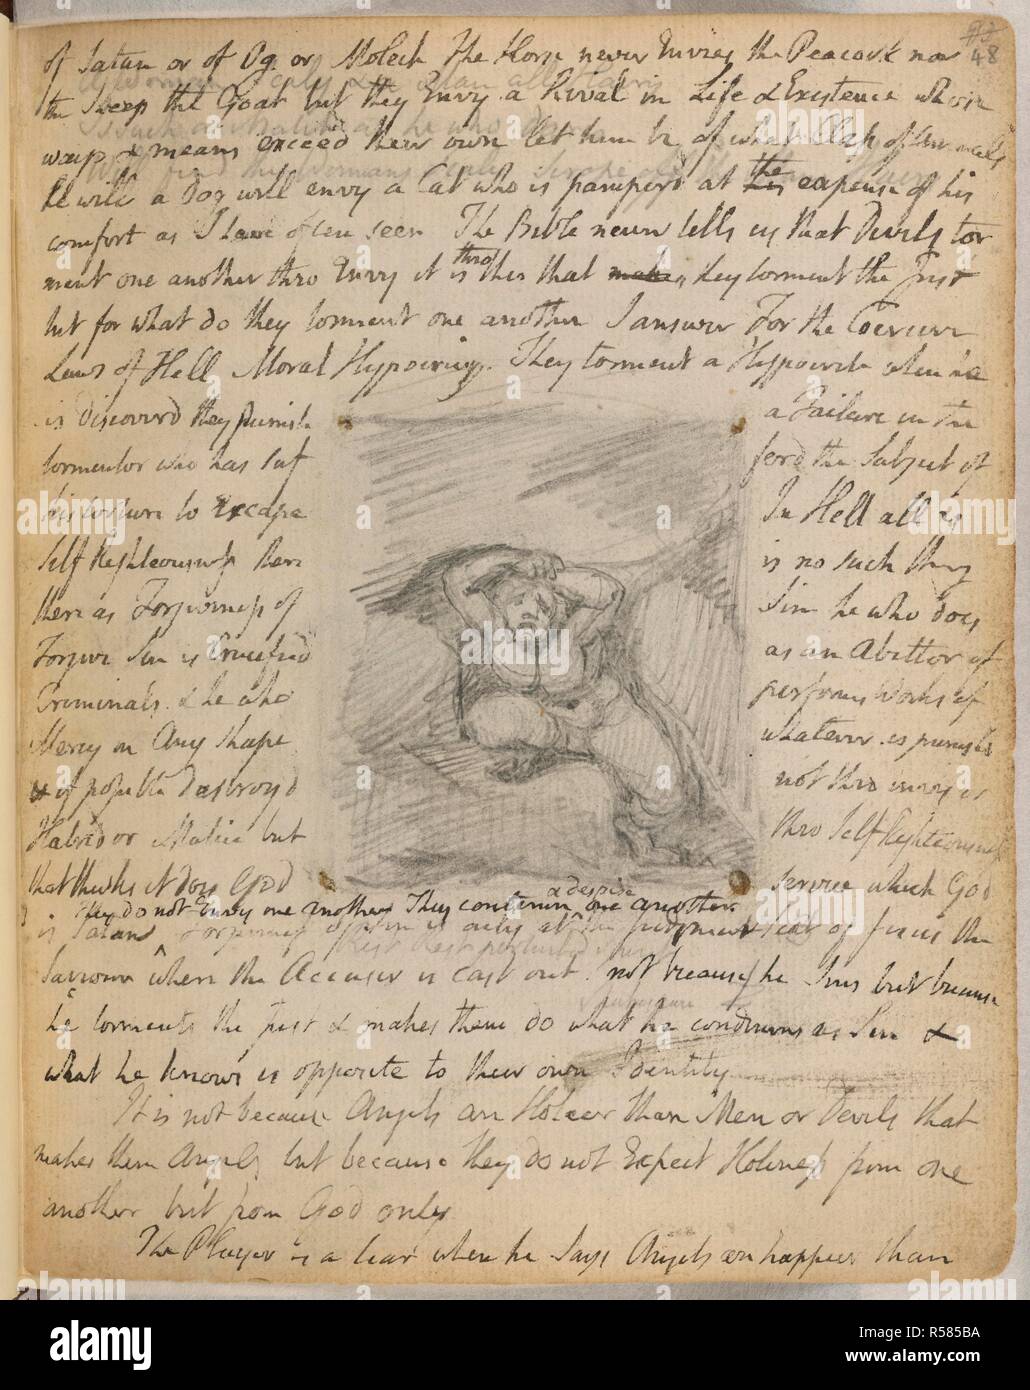 93
48
of Satan or of Og or Molech The Horse never Envies the Peacock nor
the Sheep the Goat but they Envy a Rival in Life & Existence whose
ways & means exceed their own let him be of what Class of Animals
he will a Dog will envy a Cat who is pamperd at the expense of his
comfort as I have often seen The Bible never tells us that Devils tor
ment one another thro Envy it is thro this that make they torment the Just
but for what do they torment one another I answer For the Coercive
Laws of Hell Moral Hypocrisy. They torment a Hypocrite when he
is discoverd they punish a Failure in the
tormentor who has suf ferd the Subject of
his torture to Escape In Hell all is
Self Righteousness there is no such thing
there as Forgiveness of Sin he who does
Forgive Sin is Crucified as an Abettor of
Criminals & he who performs Works of
Mercy in Any shape whatever is punishd
& if possible Destroyd not thro envy or
Hatred or Malice but thro Self Righteousness
that thinks it does God service which God
they do not Envy one another They contemn & despise one another
is Satan Forgiveness of Sin is only at the Judgment Seat of Jesus the
Saviour where the Accuser is cast out. not because he Sins but because
he torments the Just & makes them do what he condemns as Sin &
what he knows is opposite to their own Identity
It is not because Angels are Holier than Men or Devils that
makes them Angels but because they do not Expect Holiness from one
another but from God only
The Player is a liar when he Says Angels are happier than
alamy
Image ID: R585BA
www.alamy.com